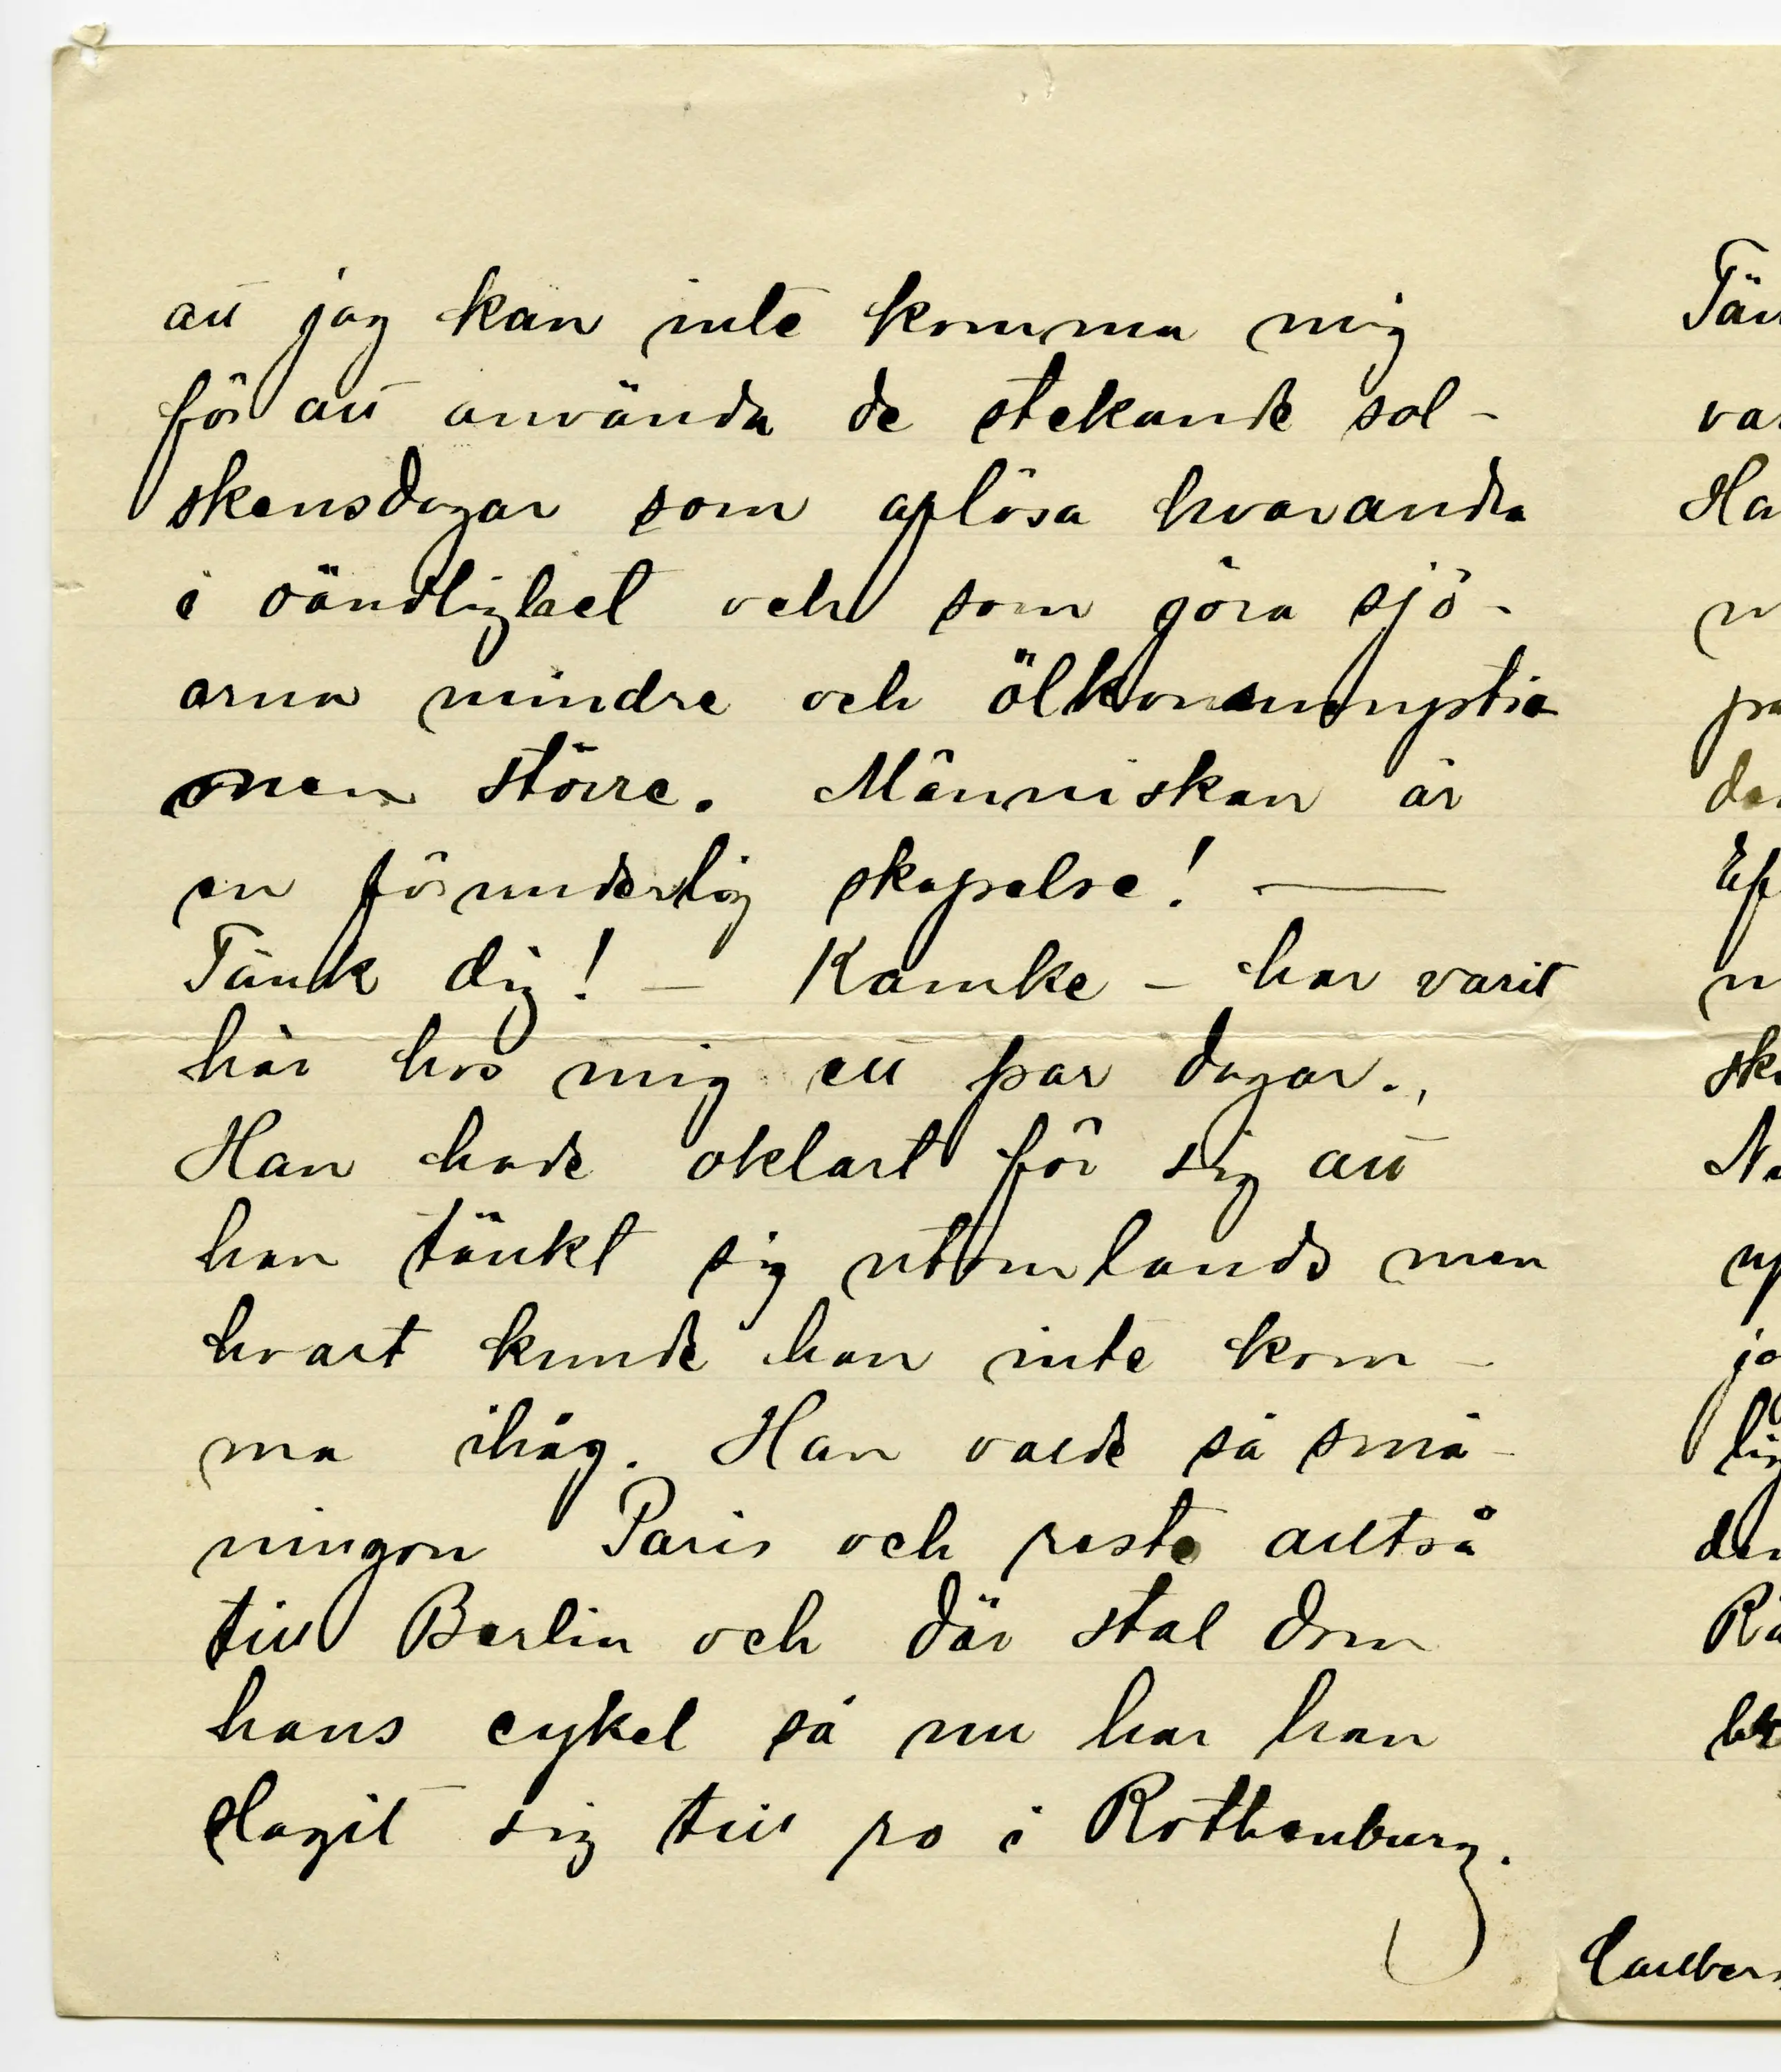 att jag kan inte komma mig
för att använda de stekande sol-
skensdagar som aflösa hvarandra
i oändlighet och som göra sjö-
arna mindre och ölkonsumptio
nen större. Människan är
en förunderlig skapelse! —
Tänk dig! — Kamke — har varit
här hos mig ett par dagar.,
Han hade oklart för sig att
han tänkt sig utomlands men
hvart kunde han inte kom-
ma ihåg. Han valde så små-
ningom Paris och reste alltså
till Berlin och där stal dom
hans cykel så nu har han
slagit sig till ro i Rothenburg.
Tän
var
Ha
den
Ef
N
up
ja
den
Rä